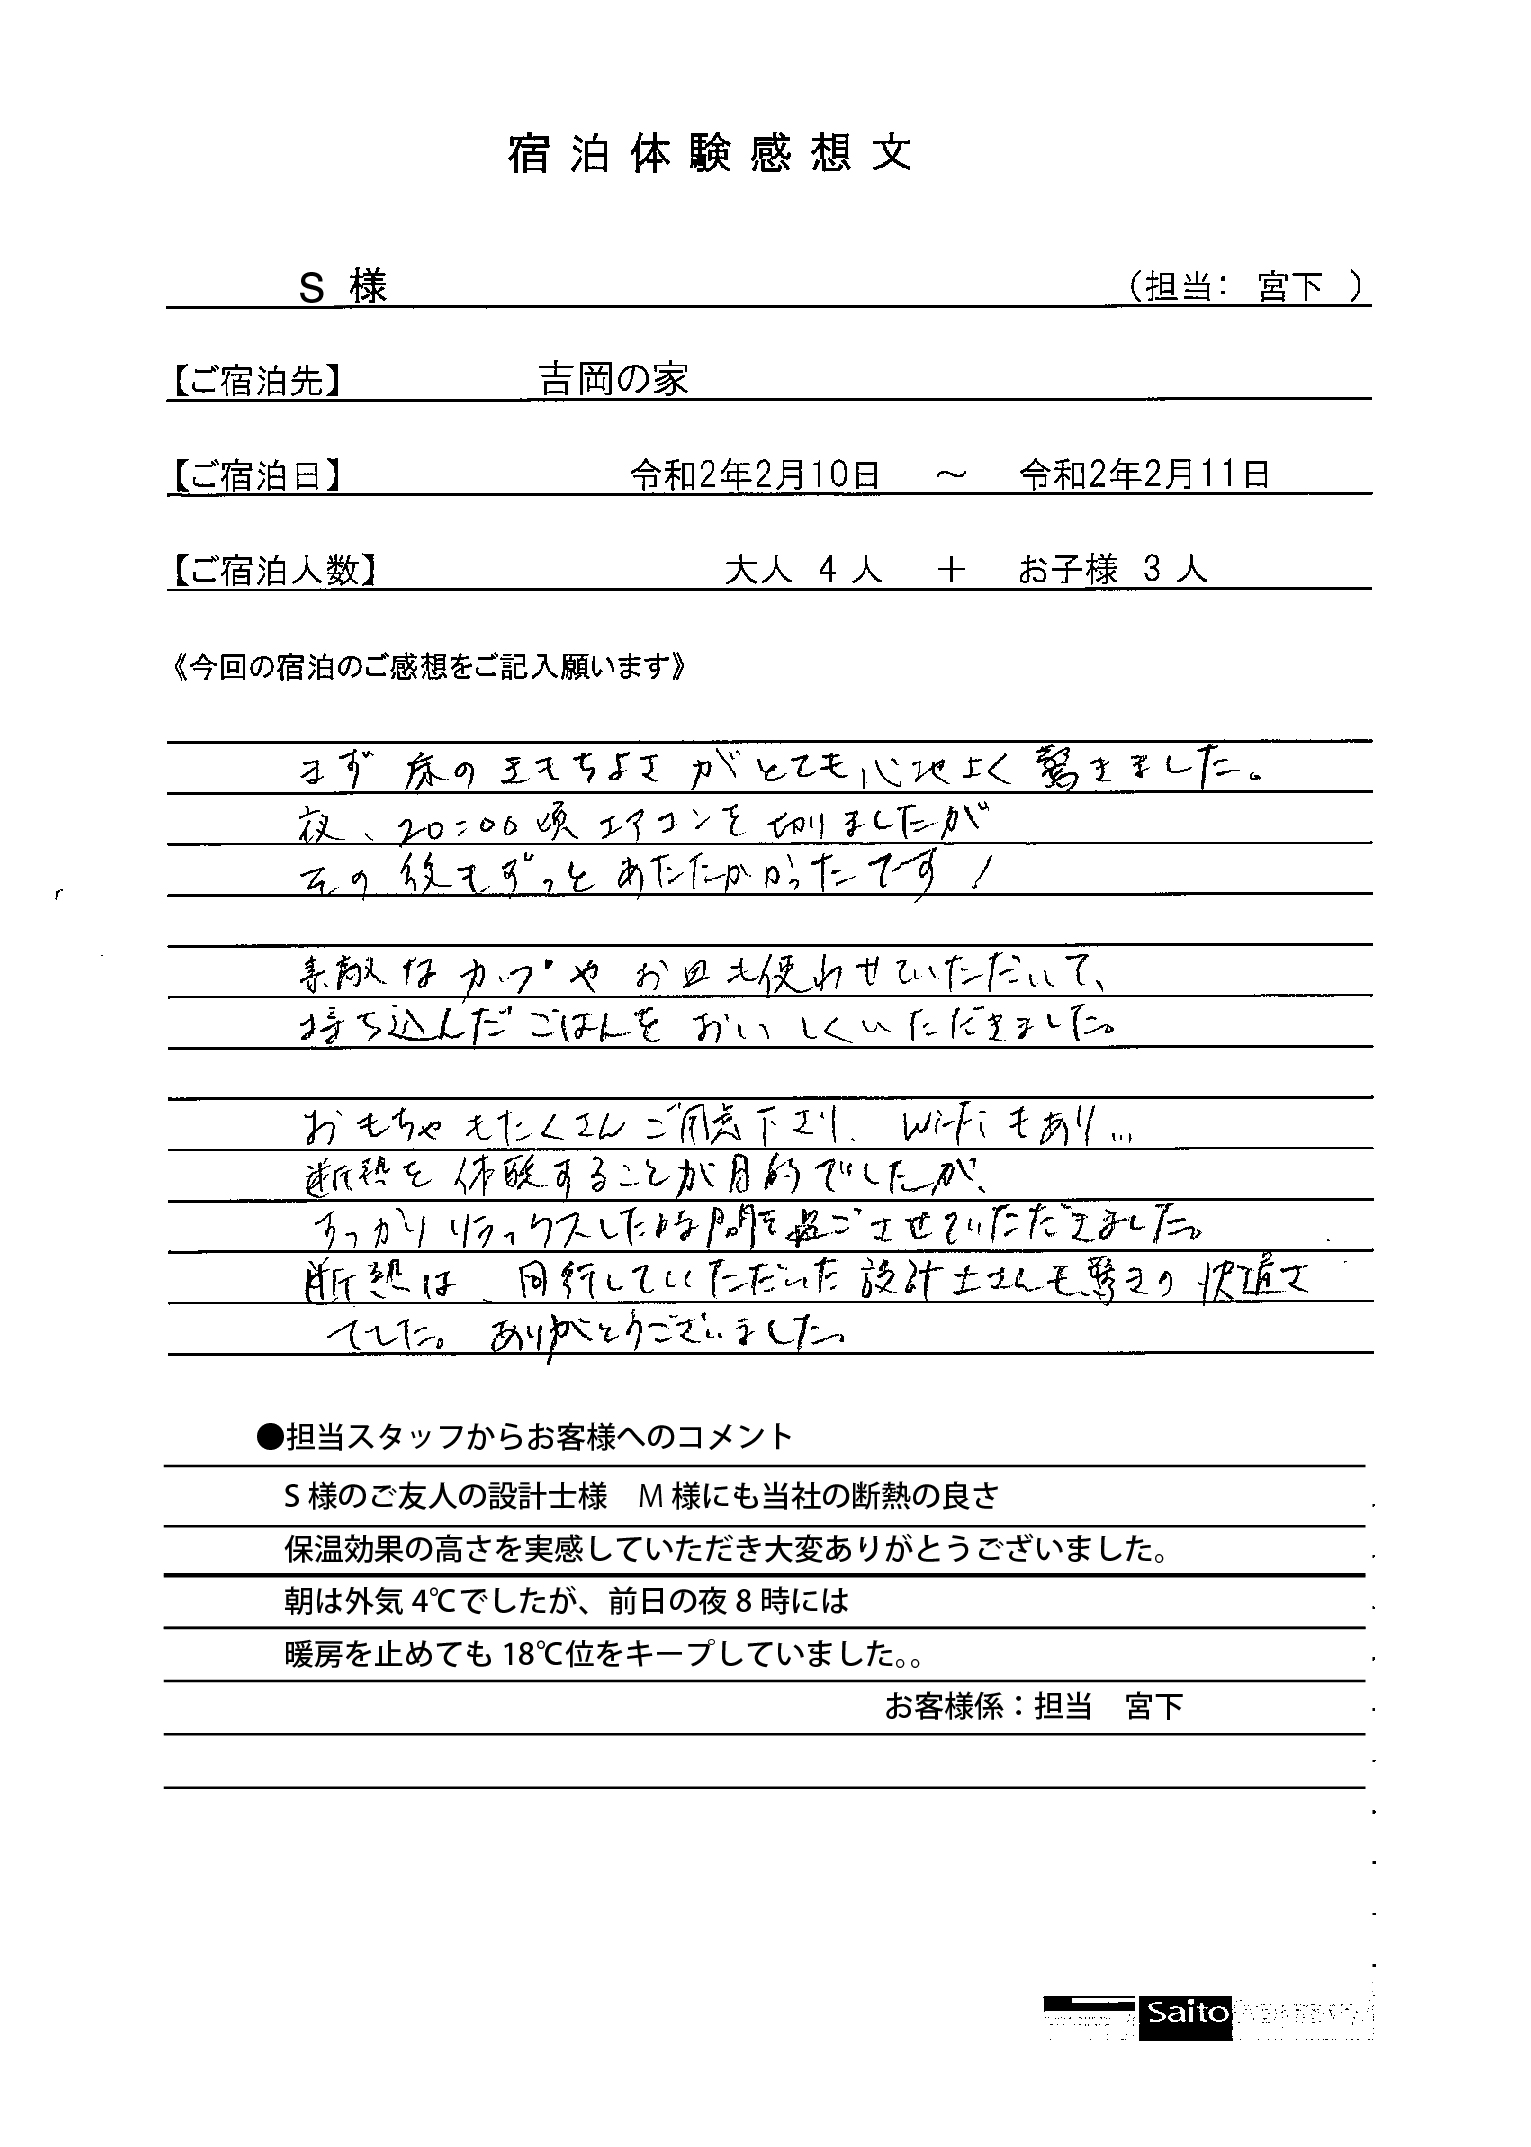 宿泊体験感想文
S 様 (担当: 宮下 )
【ご宿泊先】 吉岡の家
【ご宿泊日】 令和2年2月10日 ～ 令和2年2月11日
【ご宿泊人数】 大人 4 人 ＋ お子様 3 人
《今回の宿泊のご感想をご記入願います》
まず 床の きもちよさ がとても心地よく 驚きました。
夜、20:00頃 エアコンを 切りましたが
その後もずっと あたたかかったです!
素敵な カップや お皿も使わせていただいて、
持ち込んだごはんを おいしくいただきました。
おもちゃもたくさんご用意下さり、Wi-Fiもあり...
断熱を体験することが目的でしたが、
すっかりリラックスした時間を過ごさせていただきました。
断熱は、同行していただいた設計士さんも驚きの快適さ
でした。ありがとうございました。
●担当スタッフからお客様へのコメント
S 様のご友人の設計士様　M 様にも当社の断熱の良さ
保温効果の高さを実感していただき大変ありがとうございました。
朝は外気 4℃でしたが、前日の夜 8 時には
暖房を止めても 18℃位をキープしていました。。
お客様係：担当　宮下
Saito